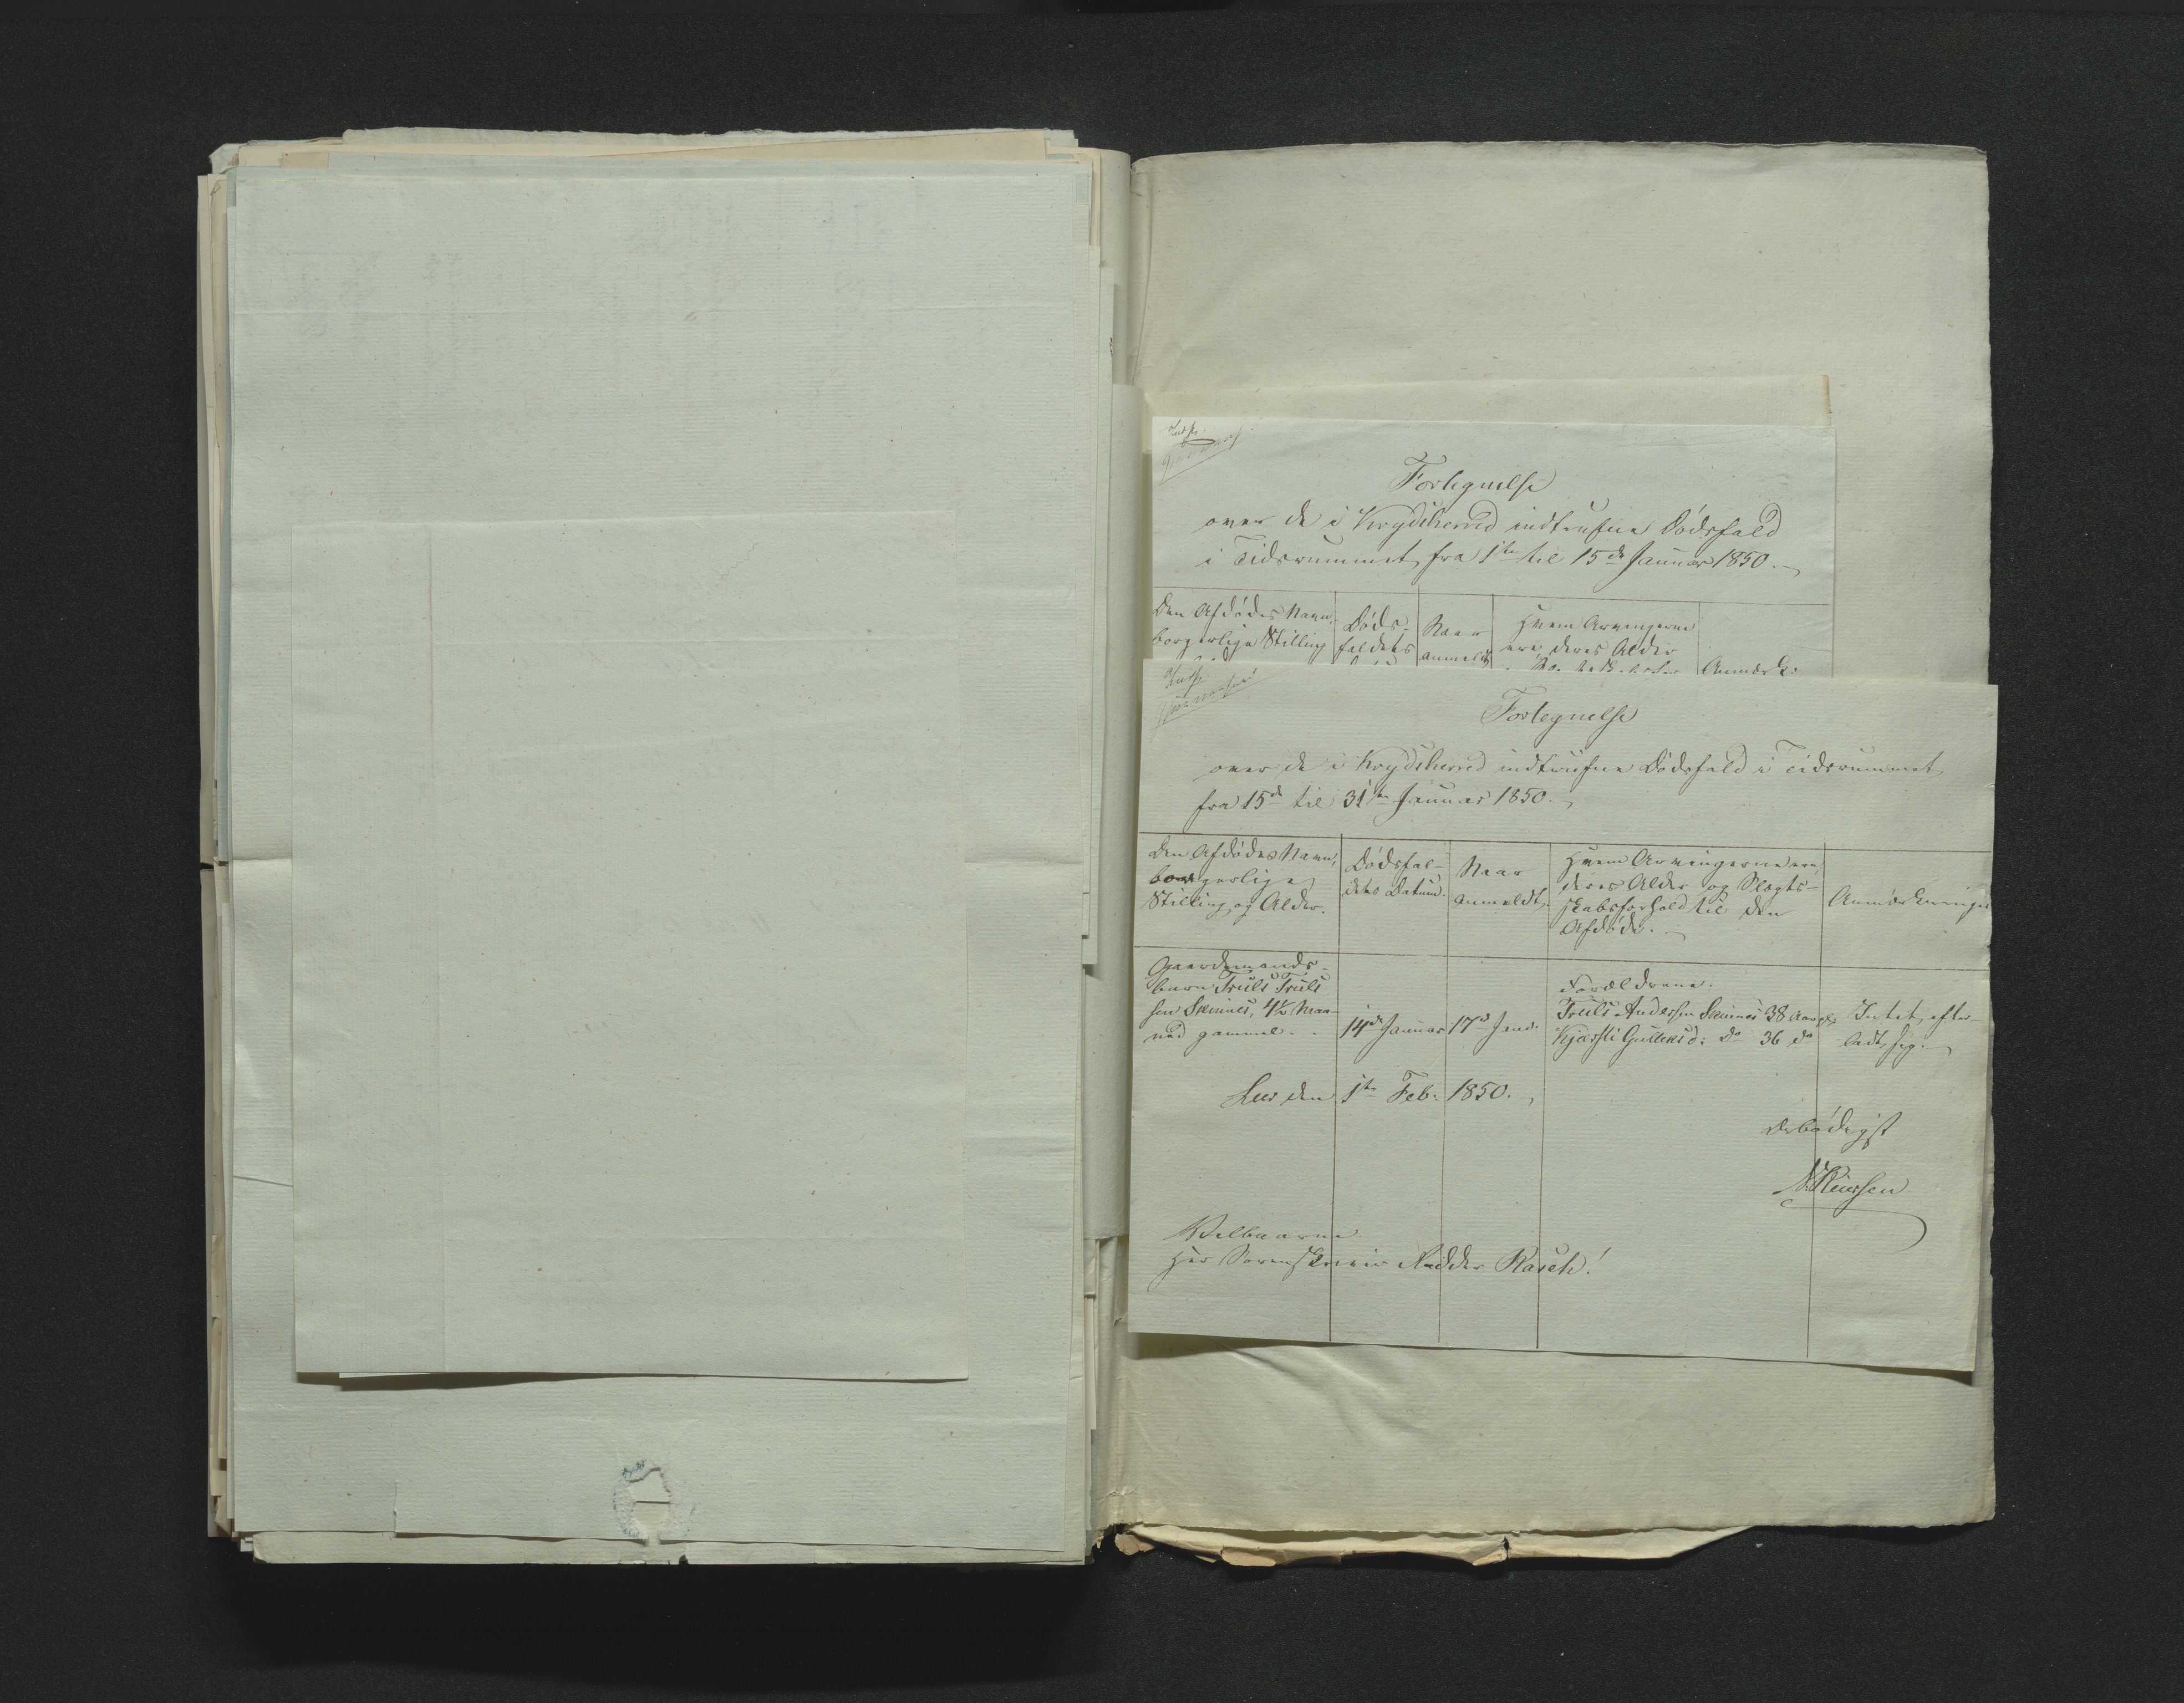 Indf.
Fortegnelse
over de i Krydsherred indtrufne Dødsfald
i Tidsrummet fra 1ste til 15de Januar 1850.
Den Afdødes Navn, borgerlige Stilling
Dødsfaldets
Naar anmeldt
Hvem Arvingerne
ere, deres Alder
Anmærk:
Indf.
Fortegnelse
over de i Krydsherred indtrufne Dødsfald i Tidsrummet
fra 15de til 31te Januar 1850.
Den Afdødes Navn,
borgerlige
Stilling og Alder.
Dødsfal-
dets Datum.
Naar
anmeldt.
Hvem Arvingerne ere,
deres Alder og Slægts-
skabsforhold til den
Afdøde.
Anmærkninger
Gaardmands-
barn Truls Truls
sen Skinnes, 4½ Maa-
ned gammel.
14de Januar
17d Janr.
Forældrene:
Truls Andersen Skinnes 38 Aar gl.
Kjersti Gulleksd: do 36 do
Intet efter-
ladt sig.
Lur den 1te Feb: 1850.
Ærbødigst
Velbaarne
Herr Sorenskriver Ridder Rasch!